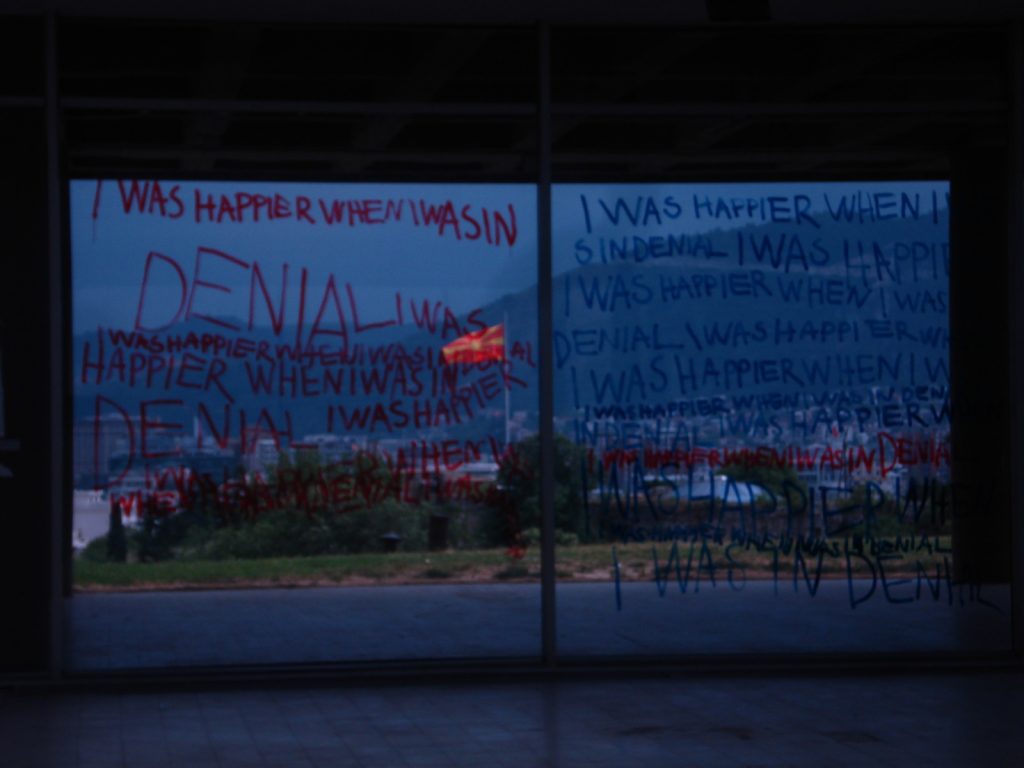 I WAS HAPPIER WHEN I WAS IN
DENIAL I WAS
I WAS HAPPIER WHEN I WAS IN DENIAL
HAPPIER WHEN I WAS IN
DENIAL I WAS HAPPIER
I WAS HAPPIER WHEN
WHEN I WAS IN DENIAL I WAS
I WAS HAPPIER WHEN I
S IN DENIAL I WAS HAPPIE
I WAS HAPPIER WHEN I WAS
DENIAL I WAS HAPPIER WH
I WAS HAPPIER WHEN I W
I WAS HAPPIER WHEN I WAS IN DENI
IN DENIAL I WAS HAPPIER W
I WAS HAPPIER WHEN I WAS IN DENIA
I WAS HAPPIER WHEN
I WAS HAPPIER WHEN I WAS IN DENIAL
I WAS IN DENIAL